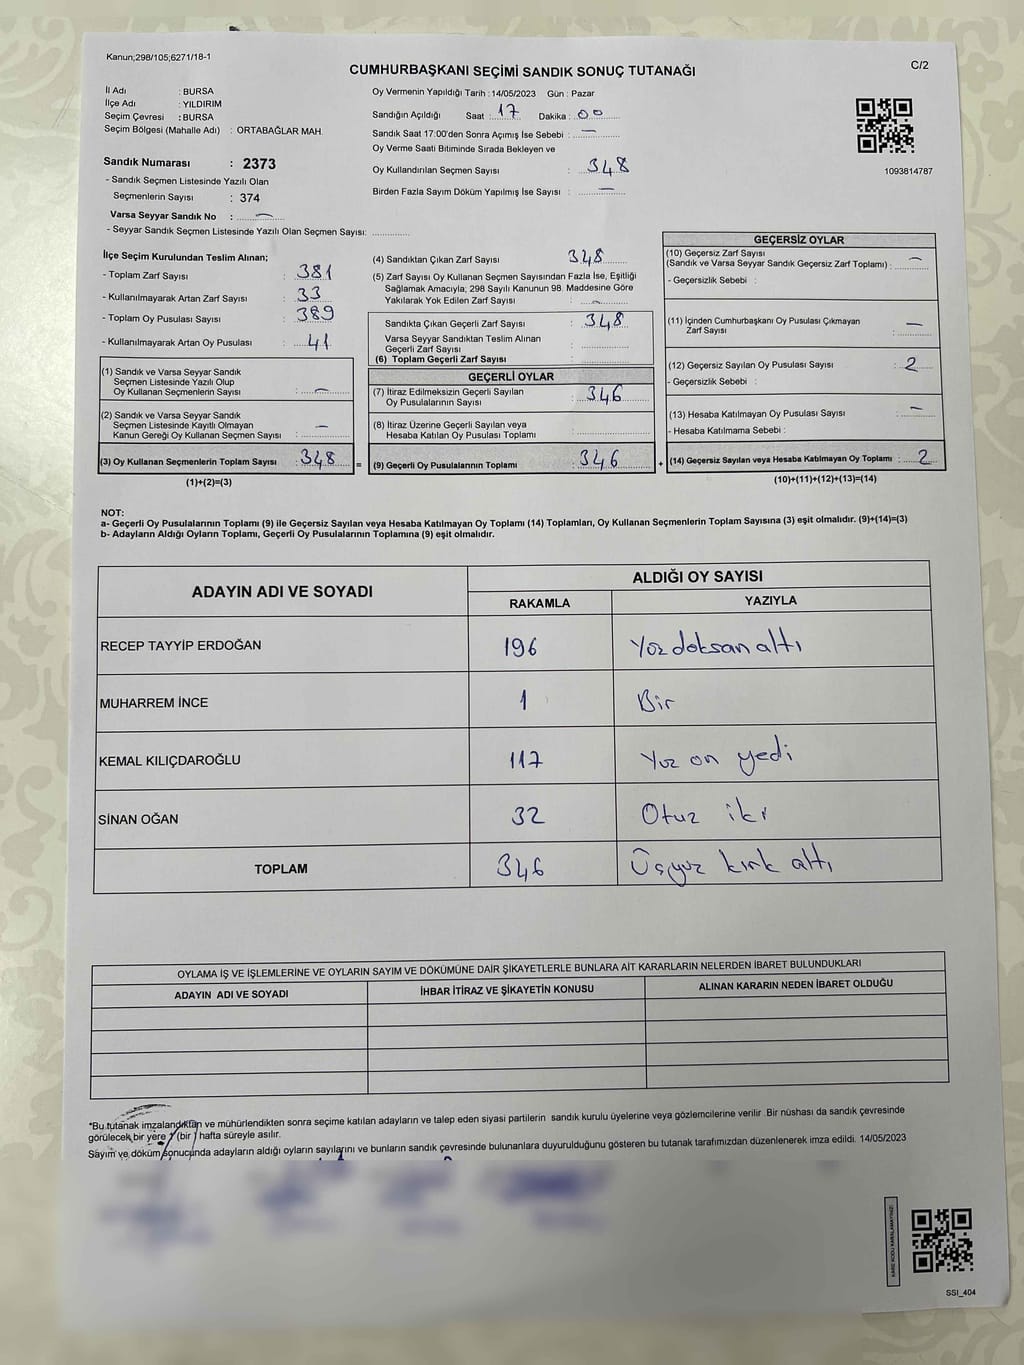 Kanun;298/105;6271/18-1
C/2
CUMHURBAŞKANI SEÇİMİ SANDIK SONUÇ TUTANAĞI
İl Adı : BURSA
İlçe Adı : YILDIRIM
Seçim Çevresi : BURSA
Seçim Bölgesi (Mahalle Adı) : ORTABAĞLAR MAH.
Sandık Numarası : 2373
- Sandık Seçmen Listesinde Yazılı Olan
Seçmenlerin Sayısı : 374
Varsa Seyyar Sandık No : —
- Seyyar Sandık Seçmen Listesinde Yazılı Olan Seçmen Sayısı: ............
Oy Vermenin Yapıldığı Tarih : 14/05/2023 Gün : Pazar
Sandığın Açıldığı Saat : 17 Dakika : 00
Sandık Saat 17:00'den Sonra Açımış İse Sebebi : —
Oy Verme Saati Bitiminde Sırada Bekleyen ve
Oy Kullandırılan Seçmen Sayısı : 348
Birden Fazla Sayım Döküm Yapılmış İse Sayısı : —
1093814787
İlçe Seçim Kurulundan Teslim Alınan;
- Toplam Zarf Sayısı : 381
- Kullanılmayarak Artan Zarf Sayısı : 33
- Toplam Oy Pusulası Sayısı : 389
- Kullanılmayarak Artan Oy Pusulası : 41
(1) Sandık ve Varsa Seyyar Sandık
Seçmen Listesinde Yazılı Olup
Oy Kullanan Seçmenlerin Sayısı : —
(2) Sandık ve Varsa Seyyar Sandık
Seçmen Listesinde Kayıtlı Olmayan
Kanun Gereği Oy Kullanan Seçmen Sayısı : —
(3) Oy Kullanan Seçmenlerin Toplam Sayısı : 348 =
(1)+(2)=(3)
(4) Sandıktan Çıkan Zarf Sayısı : 348
(5) Zarf Sayısı Oy Kullanan Seçmen Sayısından Fazla İse, Eşitliği
Sağlamak Amacıyla; 298 Sayılı Kanunun 98. Maddesine Göre
Yakılarak Yok Edilen Zarf Sayısı : —
Sandıkta Çıkan Geçerli Zarf Sayısı : 348
Varsa Seyyar Sandıktan Teslim Alınan
Geçerli Zarf Sayısı :
(6) Toplam Geçerli Zarf Sayısı :
GEÇERLİ OYLAR
(7) İtiraz Edilmeksizin Geçerli Sayılan
Oy Pusulalarının Sayısı : 346
(8) İtiraz Üzerine Geçerli Sayılan veya
Hesaba Katılan Oy Pusulası Toplamı :
(9) Geçerli Oy Pusulalarının Toplamı : 346 +
GEÇERSİZ OYLAR
(10) Geçersiz Zarf Sayısı
(Sandık ve Varsa Seyyar Sandık Geçersiz Zarf Toplamı) : —
- Geçersizlik Sebebi :
(11) İçinden Cumhurbaşkanı Oy Pusulası Çıkmayan
Zarf Sayısı : —
(12) Geçersiz Sayılan Oy Pusulası Sayısı : 2
- Geçersizlik Sebebi :
(13) Hesaba Katılmayan Oy Pusulası Sayısı : —
- Hesaba Katılmama Sebebi :
(14) Geçersiz Sayılan veya Hesaba Katılmayan Oy Toplamı : 2
(10)+(11)+(12)+(13)=(14)
NOT:
a- Geçerli Oy Pusulalarının Toplamı (9) ile Geçersiz Sayılan veya Hesaba Katılmayan Oy Toplamı (14) Toplamları, Oy Kullanan Seçmenlerin Toplam Sayısına (3) eşit olmalıdır. (9)+(14)=(3)
b- Adayların Aldığı Oyların Toplamı, Geçerli Oy Pusulalarının Toplamına (9) eşit olmalıdır.
ADAYIN ADI VE SOYADI
ALDIĞI OY SAYISI
RAKAMLA YAZIYLA
RECEP TAYYİP ERDOĞAN 196 Yüz doksan altı
MUHARREM İNCE 1 Bir
KEMAL KILIÇDAROĞLU 117 Yüz on yedi
SİNAN OĞAN 32 Otuz iki
TOPLAM 346 Üçyüz kırk altı
OYLAMA İŞ VE İŞLEMLERİNE VE OYLARIN SAYIM VE DÖKÜMÜNE DAİR ŞİKAYETLERLE BUNLARA AİT KARARLARIN NELERDEN İBARET BULUNDUKLARI
ADAYIN ADI VE SOYADI İHBAR İTİRAZ VE ŞİKAYETİN KONUSU ALINAN KARARIN NEDEN İBARET OLDUĞU
*Bu tutanak imzalandıktan ve mühürlendikten sonra seçime katılan adayların ve talep eden siyasi partilerin sandık kurulu üyelerine veya gözlemcilerine verilir .Bir nüshası da sandık çevresinde
görülecek bir yere 1 (bir ) hafta süreyle asılır.
Sayım ve döküm sonucunda adayların aldığı oyların sayılarını ve bunların sandık çevresinde bulunanlara duyurulduğunu gösteren bu tutanak tarafımızdan düzenlenerek imza edildi. 14/05/2023
KARE KODU KARALAMAYINIZ!
SSI_404